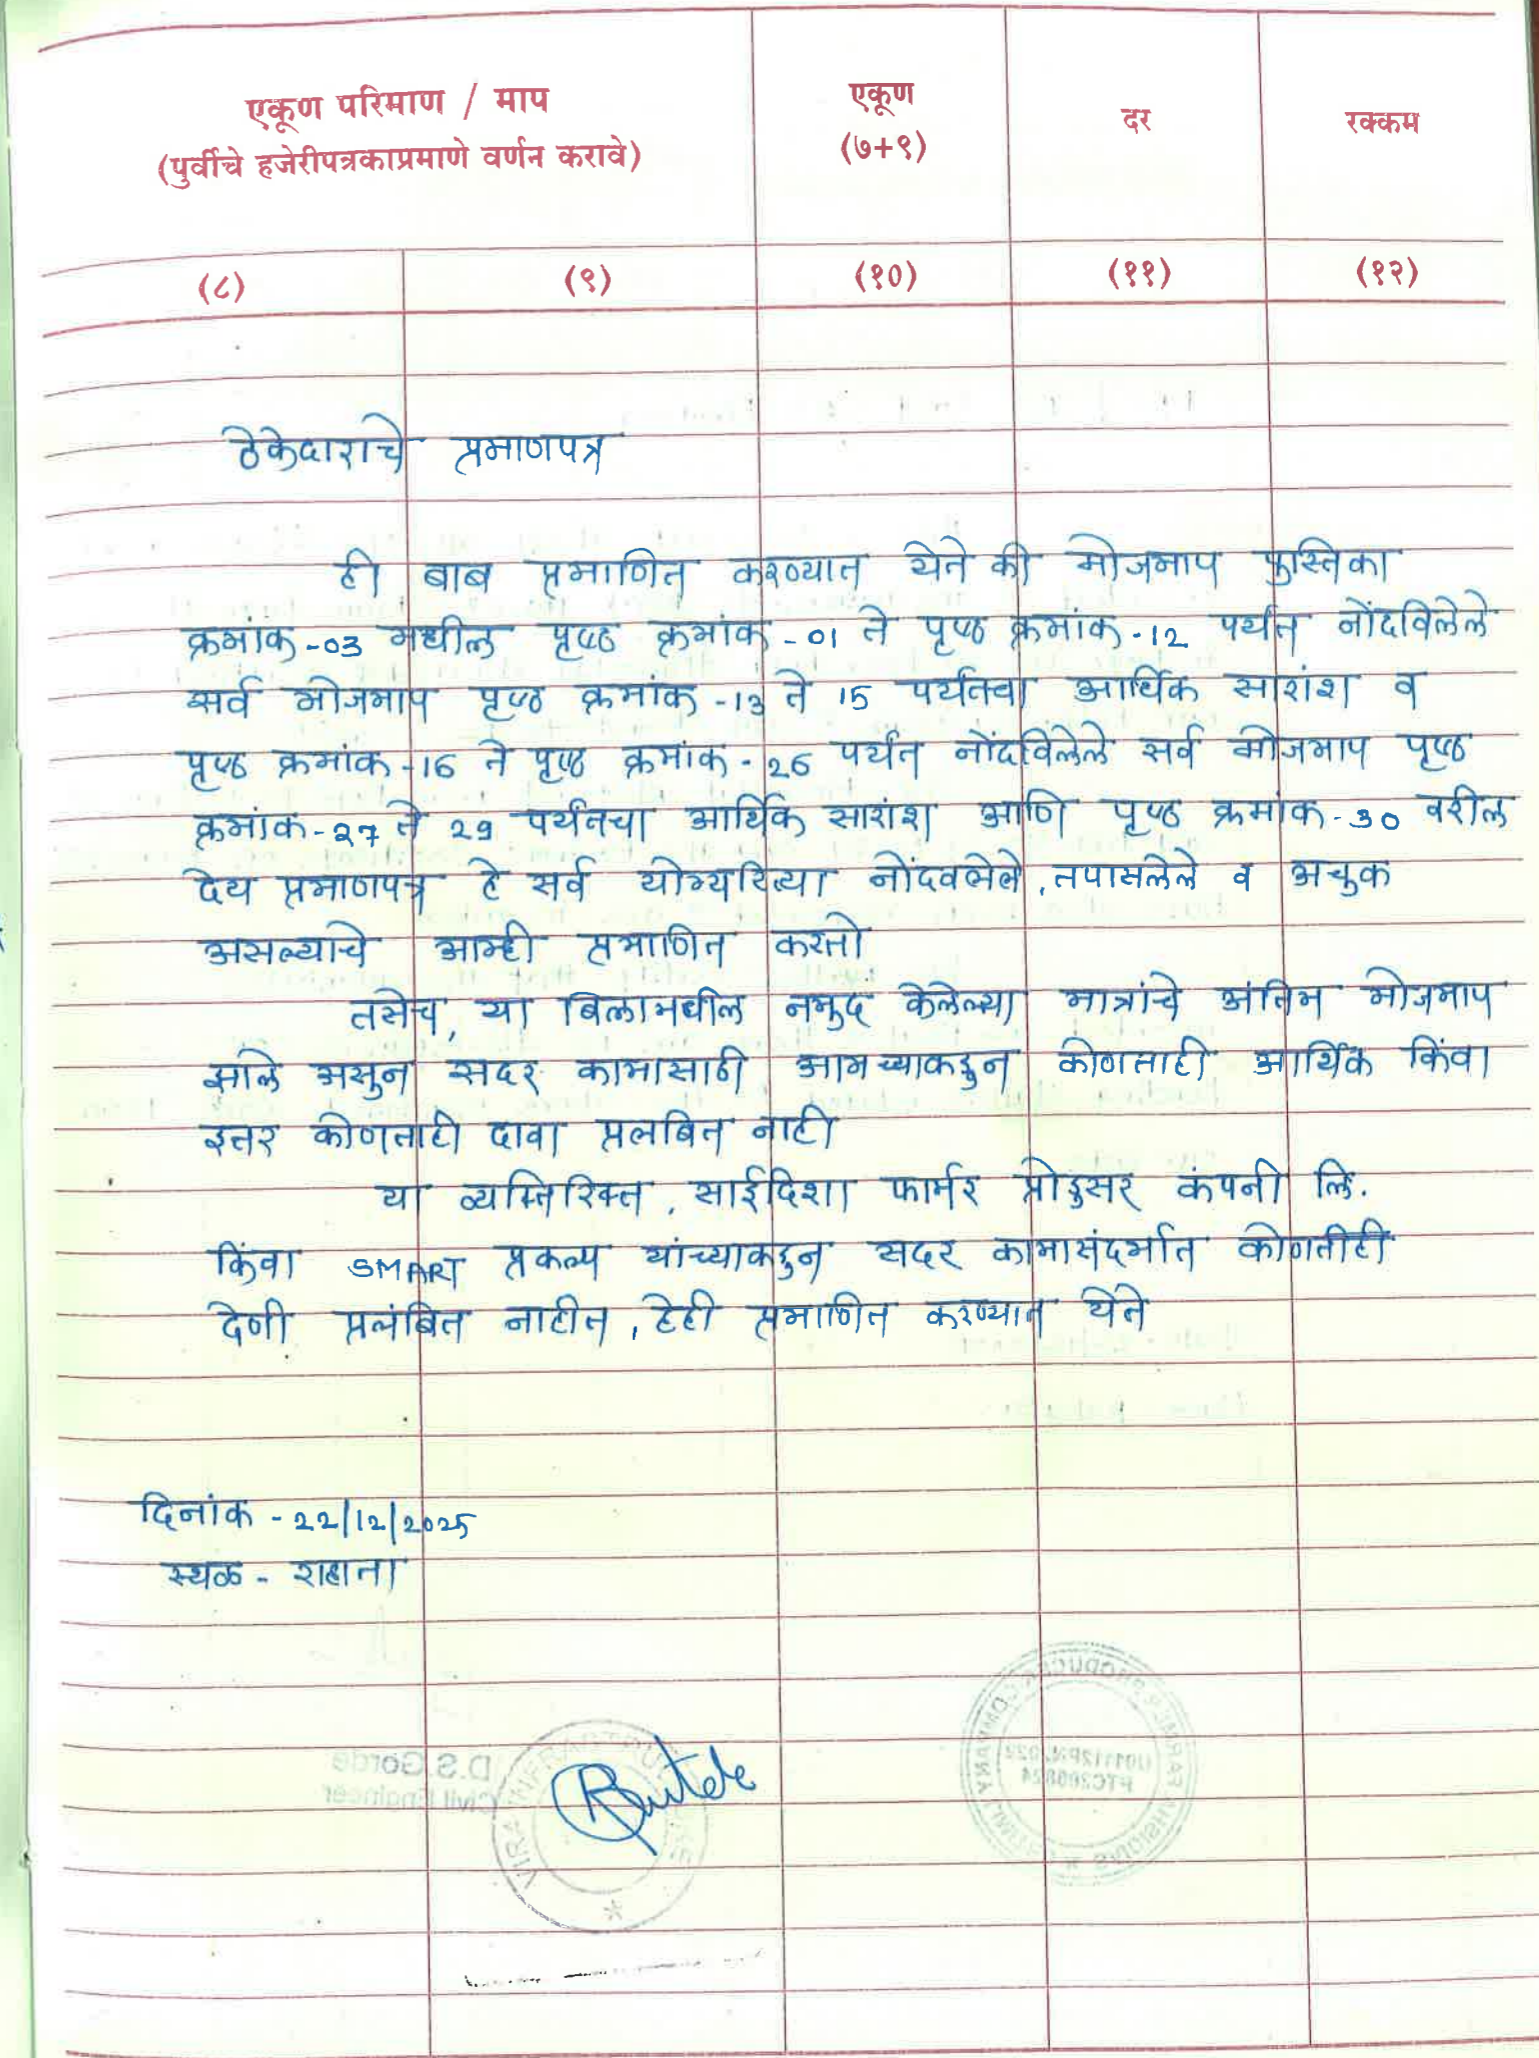 एकूण परिमाण / माप
(पुर्वीचे हजेरीपत्रकाप्रमाणे वर्णन करावे)
एकूण
(७+९)
दर
रक्कम
(८) (९) (१०) (११) (१२)
ठेकेदाराचे प्रमाणपत्र
ही बाब प्रमाणित करण्यात येते की मोजमाप पुस्तिका
क्रमांक-03 मधील पृष्ठ क्रमांक-01 ते पृष्ठ क्रमांक-12 पर्यंत नोंदविलेले
सर्व मोजमाप पृष्ठ क्रमांक-13 ते 15 पर्यंतचा आर्थिक सारांश व
पृष्ठ क्रमांक-16 ते पृष्ठ क्रमांक-26 पर्यंत नोंदविलेले सर्व मोजमाप पृष्ठ
क्रमांक-27 ते 29 पर्यंतचा आर्थिक सारांश आणि पृष्ठ क्रमांक-30 वरील
देय प्रमाणपत्र हे सर्व योग्यरित्या नोंदवलेले, तपासलेले व अचुक
असल्याचे आम्ही प्रमाणित करतो
तसेच, या बिलामधील नमुद केलेल्या मात्रांचे अंतिम मोजमाप
झाले असुन सदर कामासाठी आमच्याकडुन कोणताही आर्थिक किंवा
इतर कोणताही दावा प्रलबित नाही
या व्यतिरिक्त, साईदिशा फार्मर प्रोडुसर कंपनी लि.
किंवा SMART प्रकल्प यांच्याकडुन सदर कामासंदर्भात कोणतीही
देणी प्रलंबित नाहीत, हेही प्रमाणित करण्यात येते
दिनांक - 22/12/2025
स्थळ - राहाता
D.S.Gorde
Civil Engineer